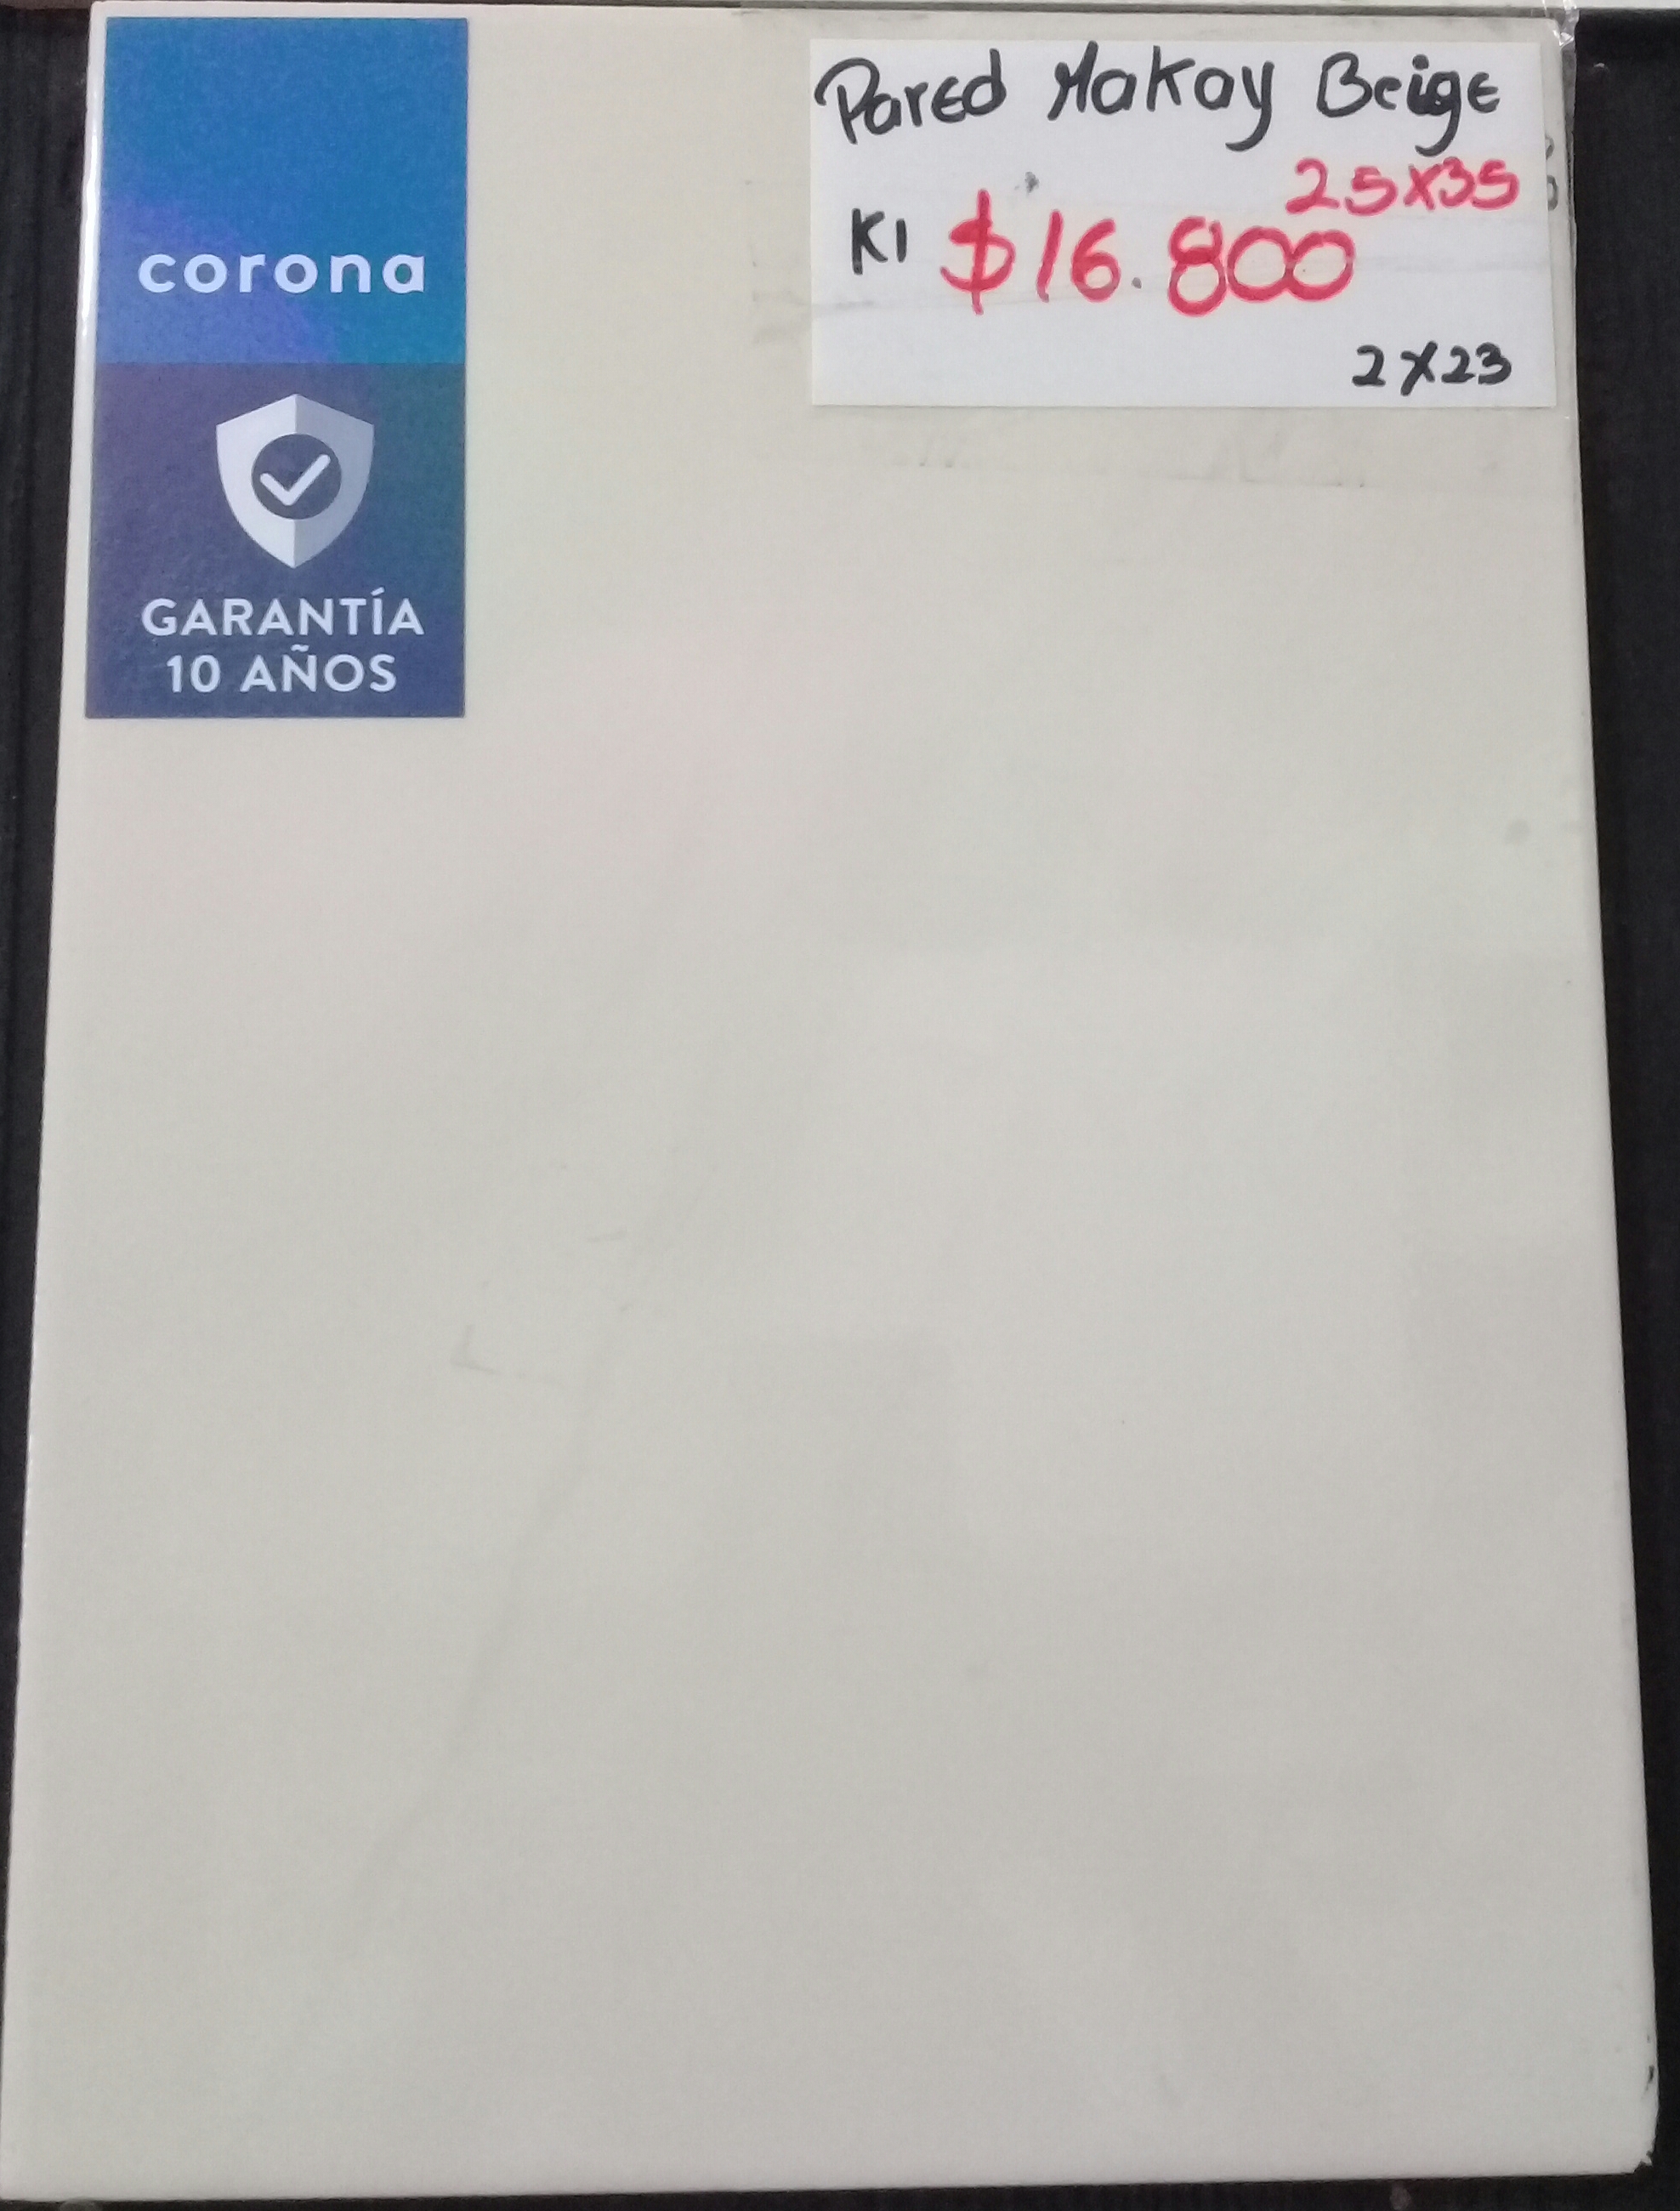 corona
GARANTÍA
10 AÑOS
Pared Makay Beige
25x35
K1 $16.800
2x23